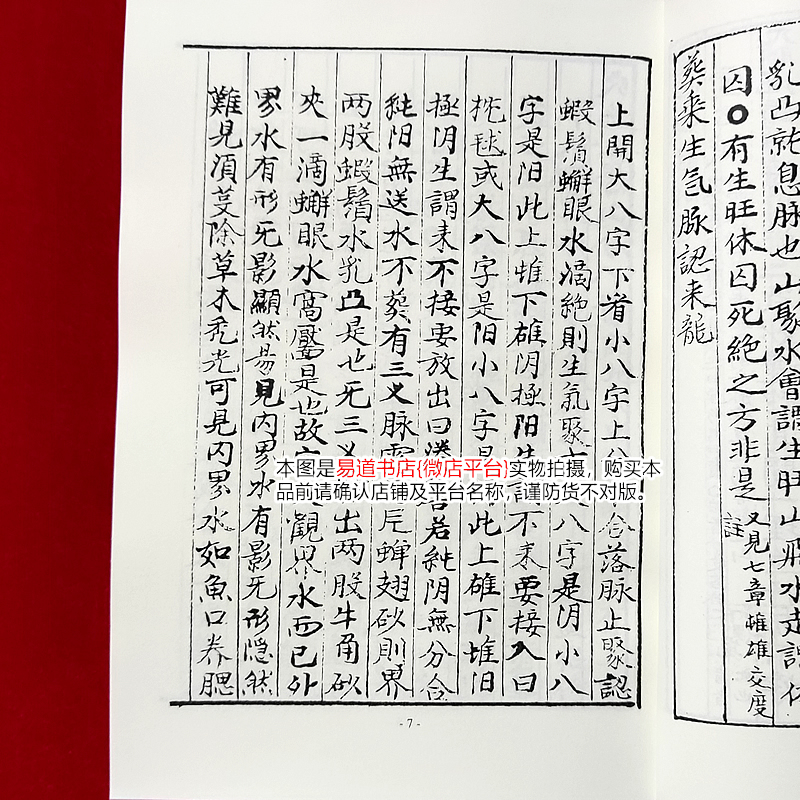 乳凸就息脉也山聚水會謂生旺山飛水走謂休
囚○有生旺休囚死絶之方非是
註又見七章雌雄交度
葵乘生氣脉認来龍
上開大八字下肖小八字上分
合落脉止聚認
蝦鬚蠏眼水滴絶則生氣聚
八字是阴小八
字是阳此上雌下雄阴極阳生
不来要接入曰
枕毬或大八字是阳小八字是
此上雄下雌阳
極阴生謂来不接要放出曰
若純阴無分合
純阳無送水不葵有三义脉
蝉翅砂則界
两股蝦鬚水乳凸是也无三义
出两股牛角砂
夾一滴蠏眼水窩靨是也故
觀界水而已外
界水有形无影顯然易見内界水有影无形隐然
難見湏蔓除草木秃光可見内界水如魚口养腮
本图是易道书店(微店平台)实物拍摄，购买本
品前请确认店铺及平台名称，谨防货不对版。
- 7 -